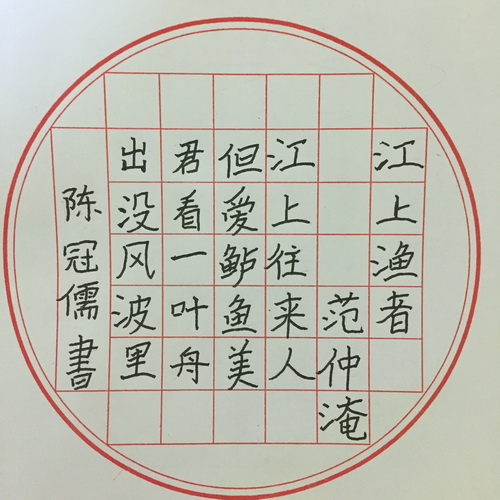 江上渔者
范仲淹
江上往来人
但爱鲈鱼美
君看一叶舟
出没风波里
陈冠儒書